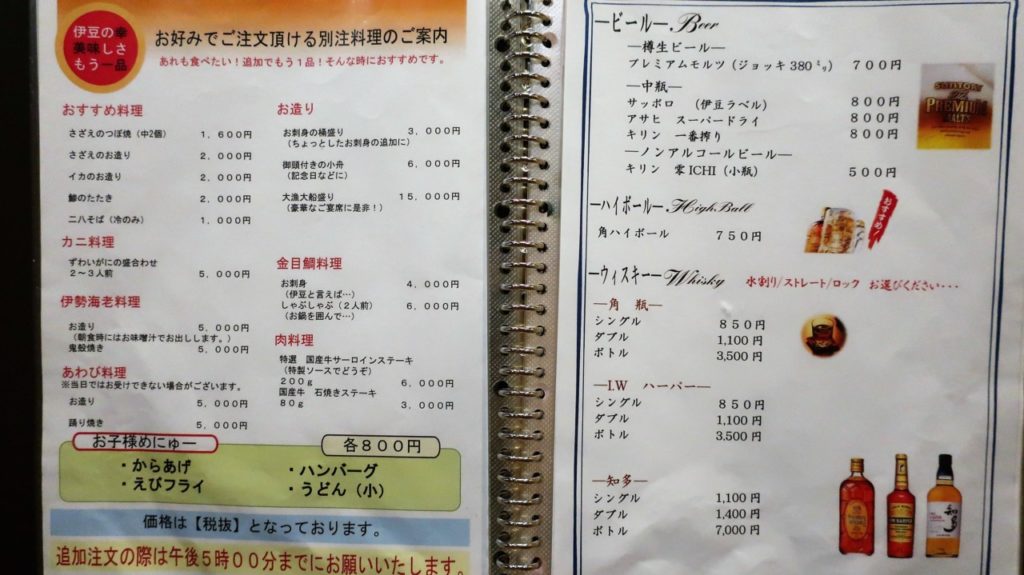 伊豆の幸
美味しさ
もう一品
お好みでご注文頂ける別注料理のご案内
あれも食べたい！追加でもう１品！そんな時におすすめです。
おすすめ料理
さざえのつぼ焼（中2個） １，６００円
さざえのお造り ２，０００円
イカのお造り ２，０００円
鯵のたたき ２，０００円
二八そば（冷のみ） １，０００円
カニ料理
ずわいがにの盛合わせ
２～３人前 ５，０００円
伊勢海老料理
お造り ５，０００円
（朝食時にはお味噌汁でお出しします。）
鬼殻焼き ５，０００円
あわび料理
※当日ではお受けできない場合がございます。
お造り ５，０００円
踊り焼き ５，０００円
お造り
お刺身の桶盛り ３，０００円
（ちょっとしたお刺身の追加に）
御頭付きの小舟 ６，０００円
（記念日などに）
大漁大船盛り １５，０００円
（豪華なご宴席に是非！）
金目鯛料理
お刺身 ４，０００円
（伊豆と言えば…）
しゃぶしゃぶ（２人前） ６，０００円
（お鍋を囲んで…）
肉料理
特選 国産牛サーロインステーキ
（特製ソースでどうぞ）
２００ｇ ６，０００円
国産牛 石焼きステーキ
８０ｇ ３，０００円
お子様めにゅー 各８００円
・からあげ ・ハンバーグ
・えびフライ ・うどん（小）
価格は【税抜】となっております。
追加注文の際は午後５時００分までにお願いいたします。
―ビール― Beer
―樽生ビール―
プレミアムモルツ（ジョッキ380㍉㍑） ７００円
―中瓶―
サッポロ （伊豆ラベル） ８００円
アサヒ スーパードライ ８００円
キリン 一番搾り ８００円
―ノンアルコールビール―
キリン 零ICHI（小瓶） ５００円
SUNTORY
The
PREMIUM
MALT'S
―ハイボール― HighBall
おすすめ！
角ハイボール ７５０円
―ウィスキー― Whisky 水割り/ストレート/ロック お選びください・・・
―角 瓶―
シングル ８５０円
ダブル 1,100円
ボトル 3,500円
―I.W ハーパー―
シングル ８５０円
ダブル 1,100円
ボトル 3,500円
―知多―
シングル 1,100円
ダブル 1,400円
ボトル 7,000円
知多